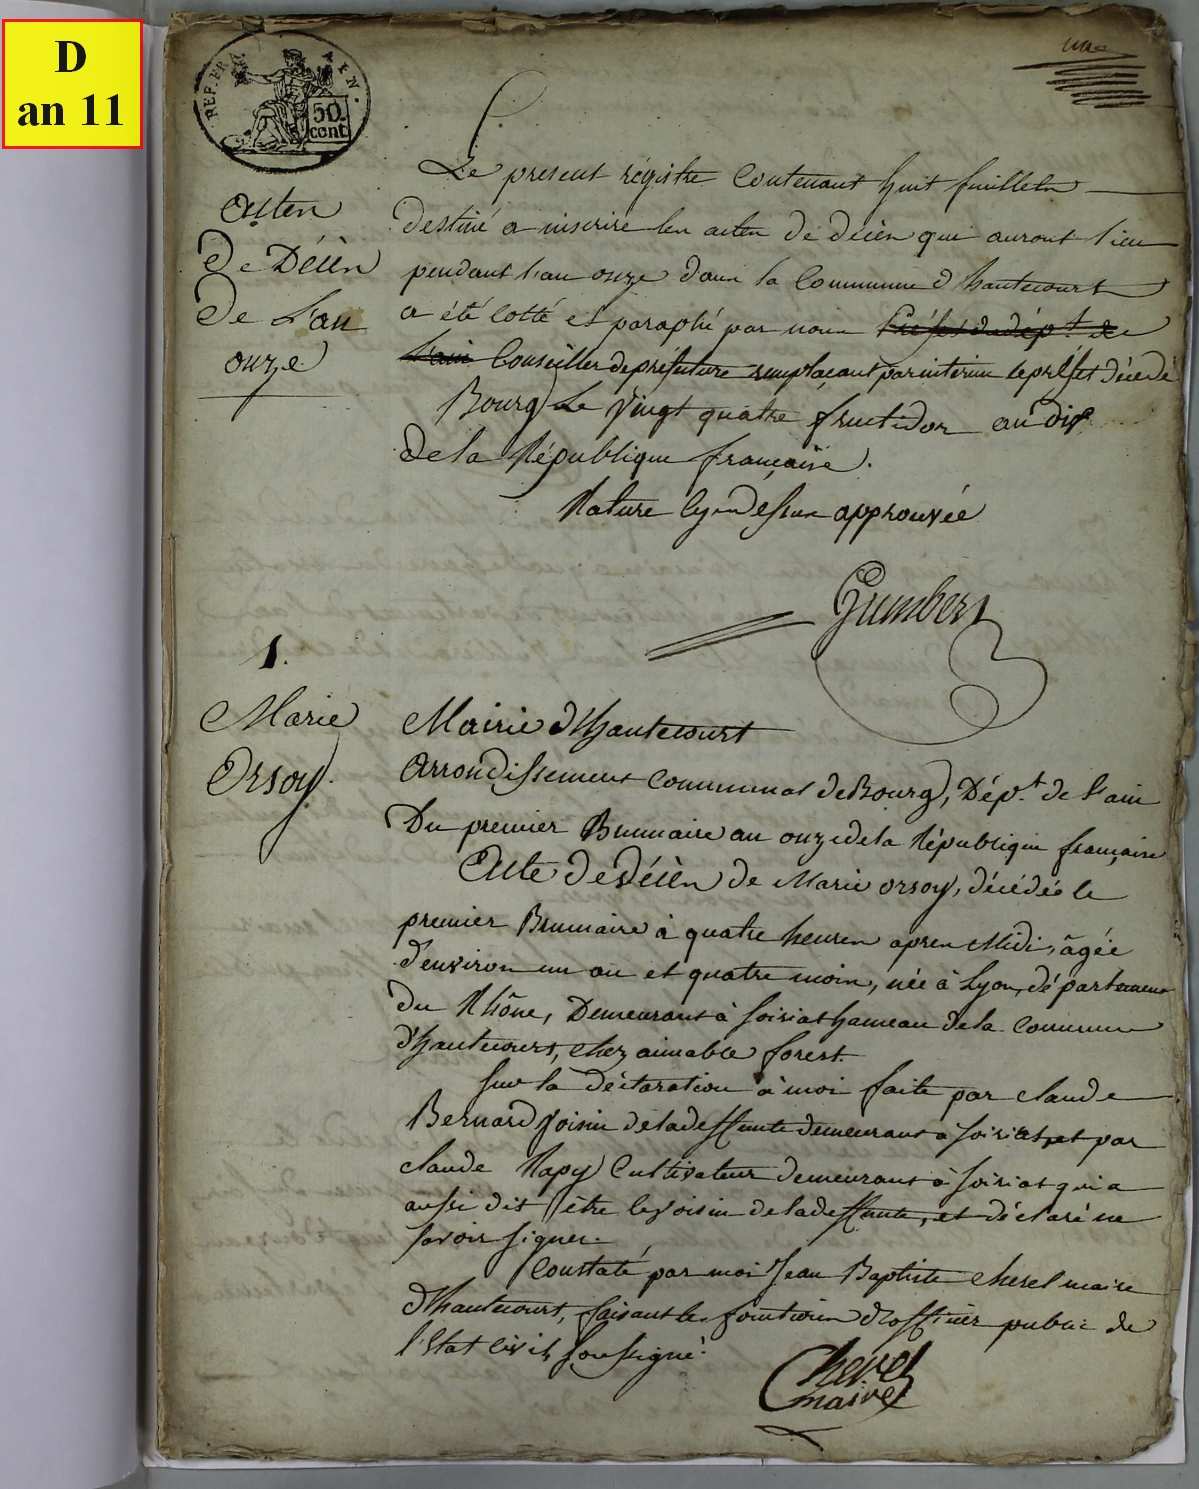 D
an 11
REP. FRA. AIN.
50
cent
une
Actes
De Décès
De L'an
onze
Le present régistre Contenant huit feuillets
destiné a inscrire les actes de décès qui auront lieu
pendant l'an onze dans la Commune d'hautecourt
a été Cotté et paraphé par nous Préfet du dép.t de
l'ain Conseiller de préfecture remplaçant par interim le préfet décédé
Bourg Le Vingt quatre fructidor an dix
de la République française.
Rature cy dessus approuvée
Gumbert
1.
Marie
Orsoy.
Mairie d'hautecourt
Arrondissement Communal de Bourg, Dép.t de l'ain
Du premier Brumaire an onze de la République française
Acte de Décès de Marie orsoy, décédée le
premier Brumaire à quatre heures apres Midi, âgée
d'environ un an et quatre mois, née à Lyon, département
du Rhône, Demeurant à Soiriat hameau de la Commune
d'hautecourt, chez aimable forest.
Sur la déclaration à moi faite par claude
Bernard Voisin de la deffunte demeurant à Soiriat, et par
claude Rapy Cultivateur demeurant à Soiriat qui a
aussi dit être le voisin de la deffunte, et déclaré ne
savoir signer.
Constaté par moi Jean Baptiste chevel maire
d'hautecourt, faisant les fonctions d'officier public de
l'Etat Civil, Soussigné.
Chevel
maire